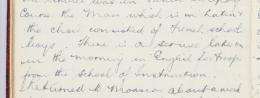 Course the Mass which is in Latin &
the choir consisted of French school
boys. There is a service taken
in the morning in English to troops
from the School of Instruction.
Returned to Monsior about